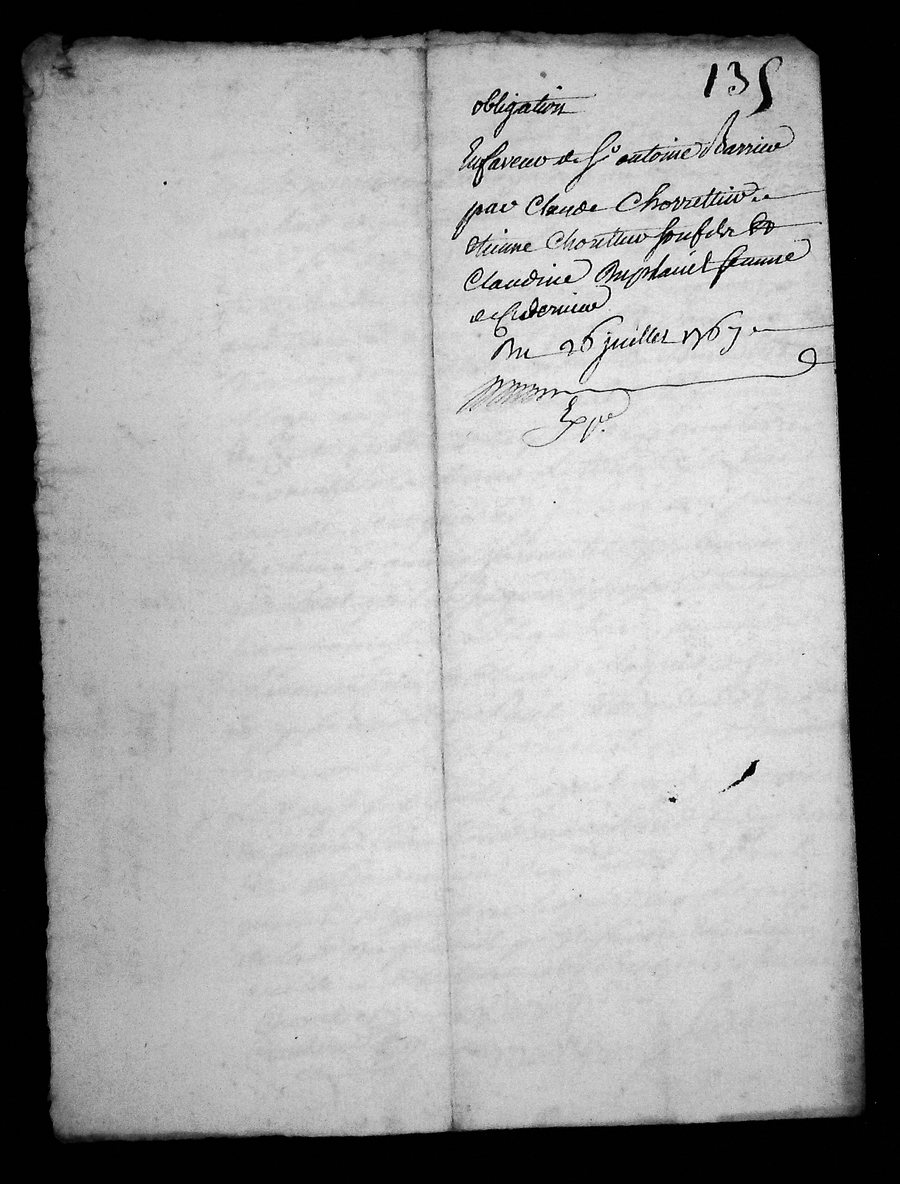 135
obligation
En faveur de Sr antoine Barriue
par Claude Chorrettier
etienne Chorettier son fils et
Claudine femme
de ce dernier
Du 26 juillet 1767
Expe